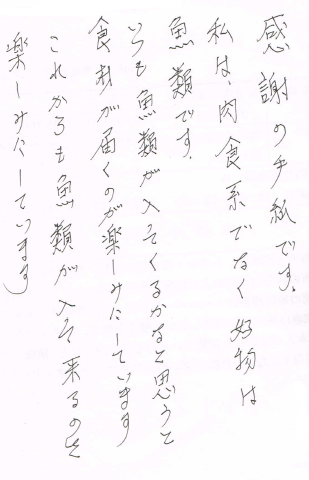 感謝の手紙です。
私は、肉食系でなく好物は
魚類です。
いつも魚類が入ってくるかなと思うと
食材が届くのが楽しみにしています
これからも魚類が入って来るのを
楽しみにしています